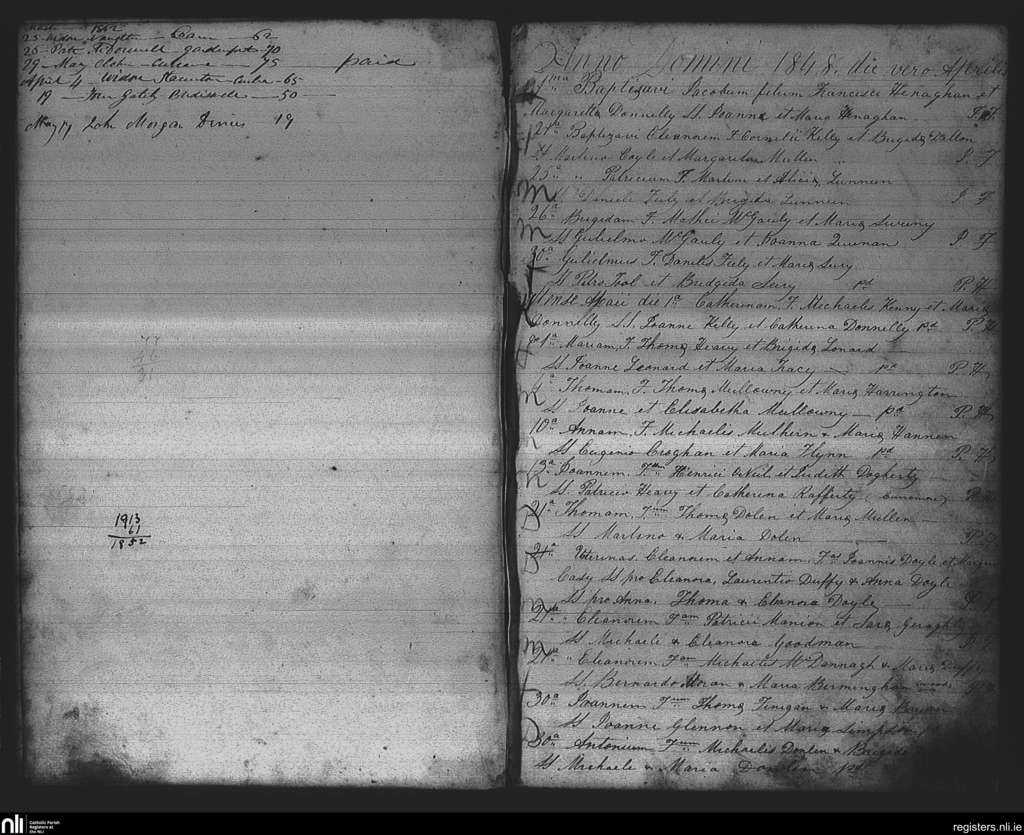 March 1862
25 Widow Vaughn — 62
26 Patt McDonnell — 70
29 May — 75 paid
April 4 Widow Staunton — 65
19 — — 50 —
May 17 John Morgan 19
77
46
31
1913
61
1852
Anno Domini 1848. die vero Aprilis
Baptizavi Jacobum filium Francisci Henaghan et
Margarita Donnelly SS. Joanne et Maria Henaghan P. H.
24a Baptizavi Eleanorem F. Cornelii Kelly et Brigida Dallon
SS Martino Coyle et Margarita Mullen „ P. F
25a „ Patricium F. Martini et Alicia Lunneen
SS Daniele Feely et Brigida Lunneen P F
26a Brigidam F. Mathei McGauly et Maria Sweeny
SS Gulielmo McGauly et Joanna Quinan P. F
30a Gulielmus F. Danielis Feely et Maria Sury
SS Petro Tool et Brudgida Seury pd P. H
Mense Maii die 1a Catherinam F. Michaelis Kenny et Maria
Donnelly S.S. Joanne Kelly et Catherina Donnelly pd P H
1a Mariam, F. Thoma Heavy et Brigida Lonard
SS. Joanne Leonard et Maria Tracy — pd P. H,
Thomam, F. Thoma Mullowny et Maria Harrington
SS Joanne et Elisabetha Mullowny — pd P. H,
10a Annam, F. Michaelis Mulhern & Maria Hanneen
SS Eugenio Croghan et Maria Flynn pd P. H,
13a Joannem, Fum Henrici ONeil et Judith Dogherty —
SS. Patricio Heavy et Catherina Rafferty P
21a Thomam, Fum Thoma Dolen et Maria Mullen —
SS Martino & Maria Dolen — P
24a Uterinas Eleanorem et Annam, Fas Joannis Doyle et
Casy SS pro Eleanora, Laurentio Duffy & Anna Doyle
SS pro Anna, Thoma & Eleanora Doyle — P
27a „ Eleanorem Fam Patricii Manion et Sara Geraghty
SS Michaele & Eleanora Goodman
27a „ Eleanorem Fam Michaelis McDonnagh & Maria Duffy
SS. Bernardo Moran & Maria Bermingham
30a Joannem Fum Thoma Finigan & Maria
SS Joanne Glennon et Maria Simpson
30a Antonium Fum Michaelis Donlen & Brigida
SS Michaele & Maria Donlen pd
nli Catholic Parish
Registers at
the NLI
registers.nli.ie